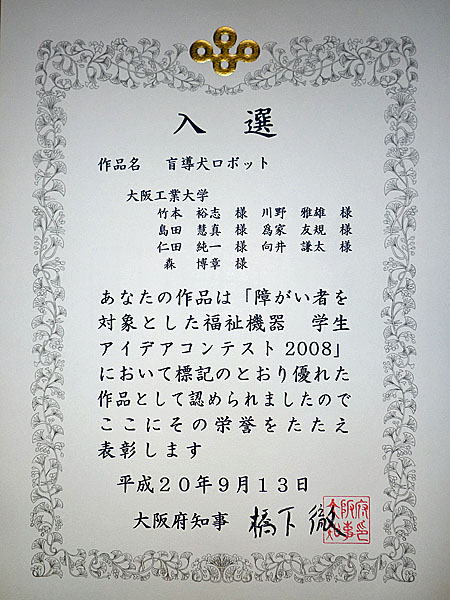 入選
作品名 盲導犬ロボット
大阪工業大学
竹本 裕志 様 川野 雅雄 様
島田 慧真 様 爲家 友規 様
仁田 純一 様 向井 謙太 様
森 博章 様
あなたの作品は「障がい者を
対象とした福祉機器 学生
アイデアコンテスト2008」
において標記のとおり優れた
作品として認められましたので
ここにその栄誉をたたえ
表彰します
平成20年9月13日
大阪府知事 橋下 徹
大阪府知事印